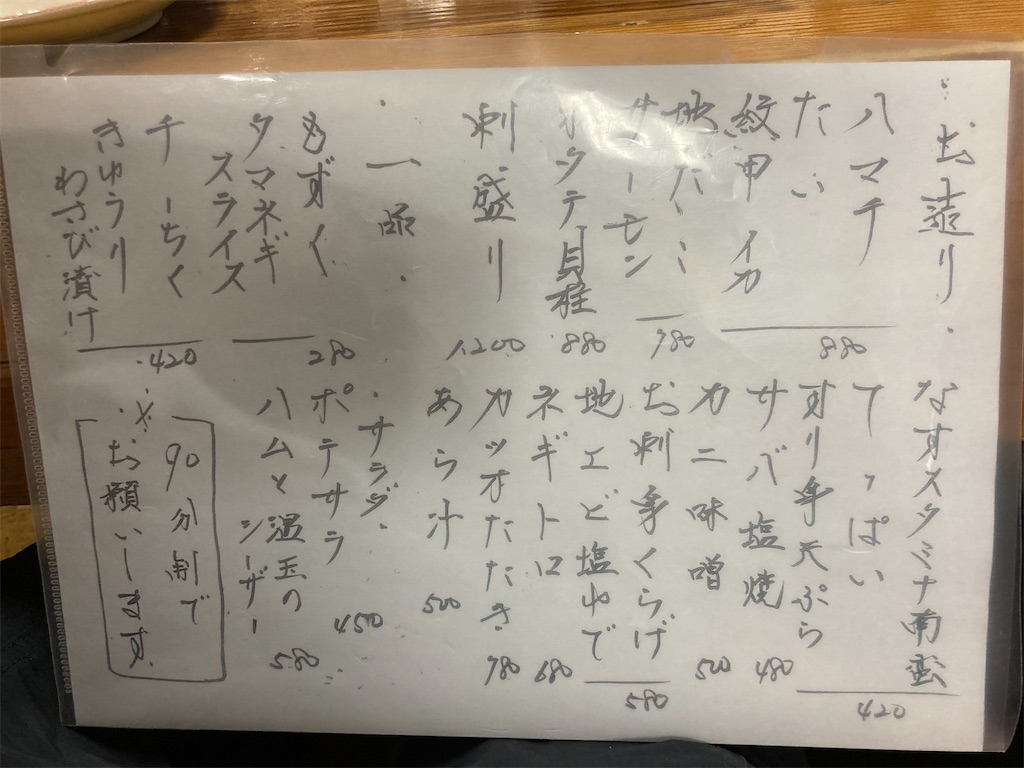 ・お造り・
ハマチ
たい
紋甲イカ
880
地だこ
サーモン
980
ホタテ貝柱
880
刺盛り
1,200
・一品・
もずく
タマネギ
スライス
280
チーちく
きゅうり
わさび漬け
420
なすスタミナ南蛮
てっぱい
すり身天ぷら
420
サバ塩焼
480
カニ味噌
500
お刺身くらげ
地エビ塩ゆで
580
ネギトロ
680
カツオたたき
980
あら汁
500
・サラダ・
ポテサラ
450
ハムと温玉の
シーザー
580
・※・
90分制で
お願いします